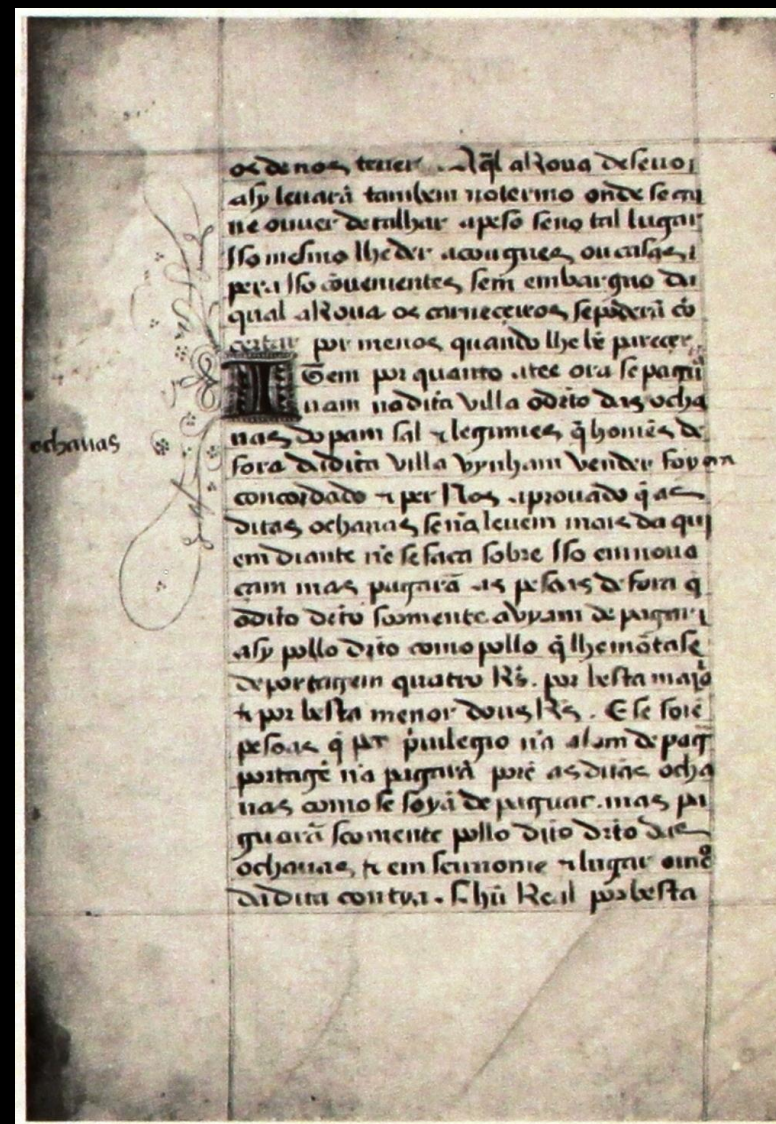 os de nos tever A ql̃ aRoua de seuoi
asy leuarã tambem no termo onde se car
ne ouuer de talhar a peso se no tal lugar
sso mesmo lhe der açougues ou casas
pera isso cõuenientes sem embarguo da
qual aRoua os carneçeiros se poderã cõ
çertar por menos quando lhe bẽ pareçer
ITem por quanto atee ora se pagua
uam na dita villa o drto das ocha
uas do pam sal & legumes q̃ homẽs de
fora da dita villa vynham vender foy em
concordado & per Nos aprouado q̃ as
ditas ochauas se nã leuem mais da qui
em diante nẽ se faca sobre sso em noua
cam mas pagarã as pesoas de fora q̃
o dito drto soomente avyam de pagar
asy pollo drto como pollo q̃ lhe mõtase
de portagem quatro Rs. por besta mayor
& por besta menor dous Rs. E se forẽ
pesoas q̃ per priuilegio nã aJam de pag
portagẽ nã pagarã porẽ as ditas ocha
uas como se soyã de paguar. mas pa
guarã soomente pollo dito drto das
ochauas
da dita contya. s. hũ Real por besta
ochauas